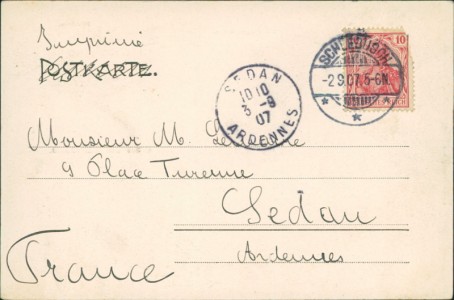 Imprimé
POSTKARTE.
10
SCHLEBUSCH
-2.9.07.5-6N.
SEDAN
10 10
3 -9
07
ARDENNES
Monsieur M.
9 Place Turenne
Sedan
Ardennes
France